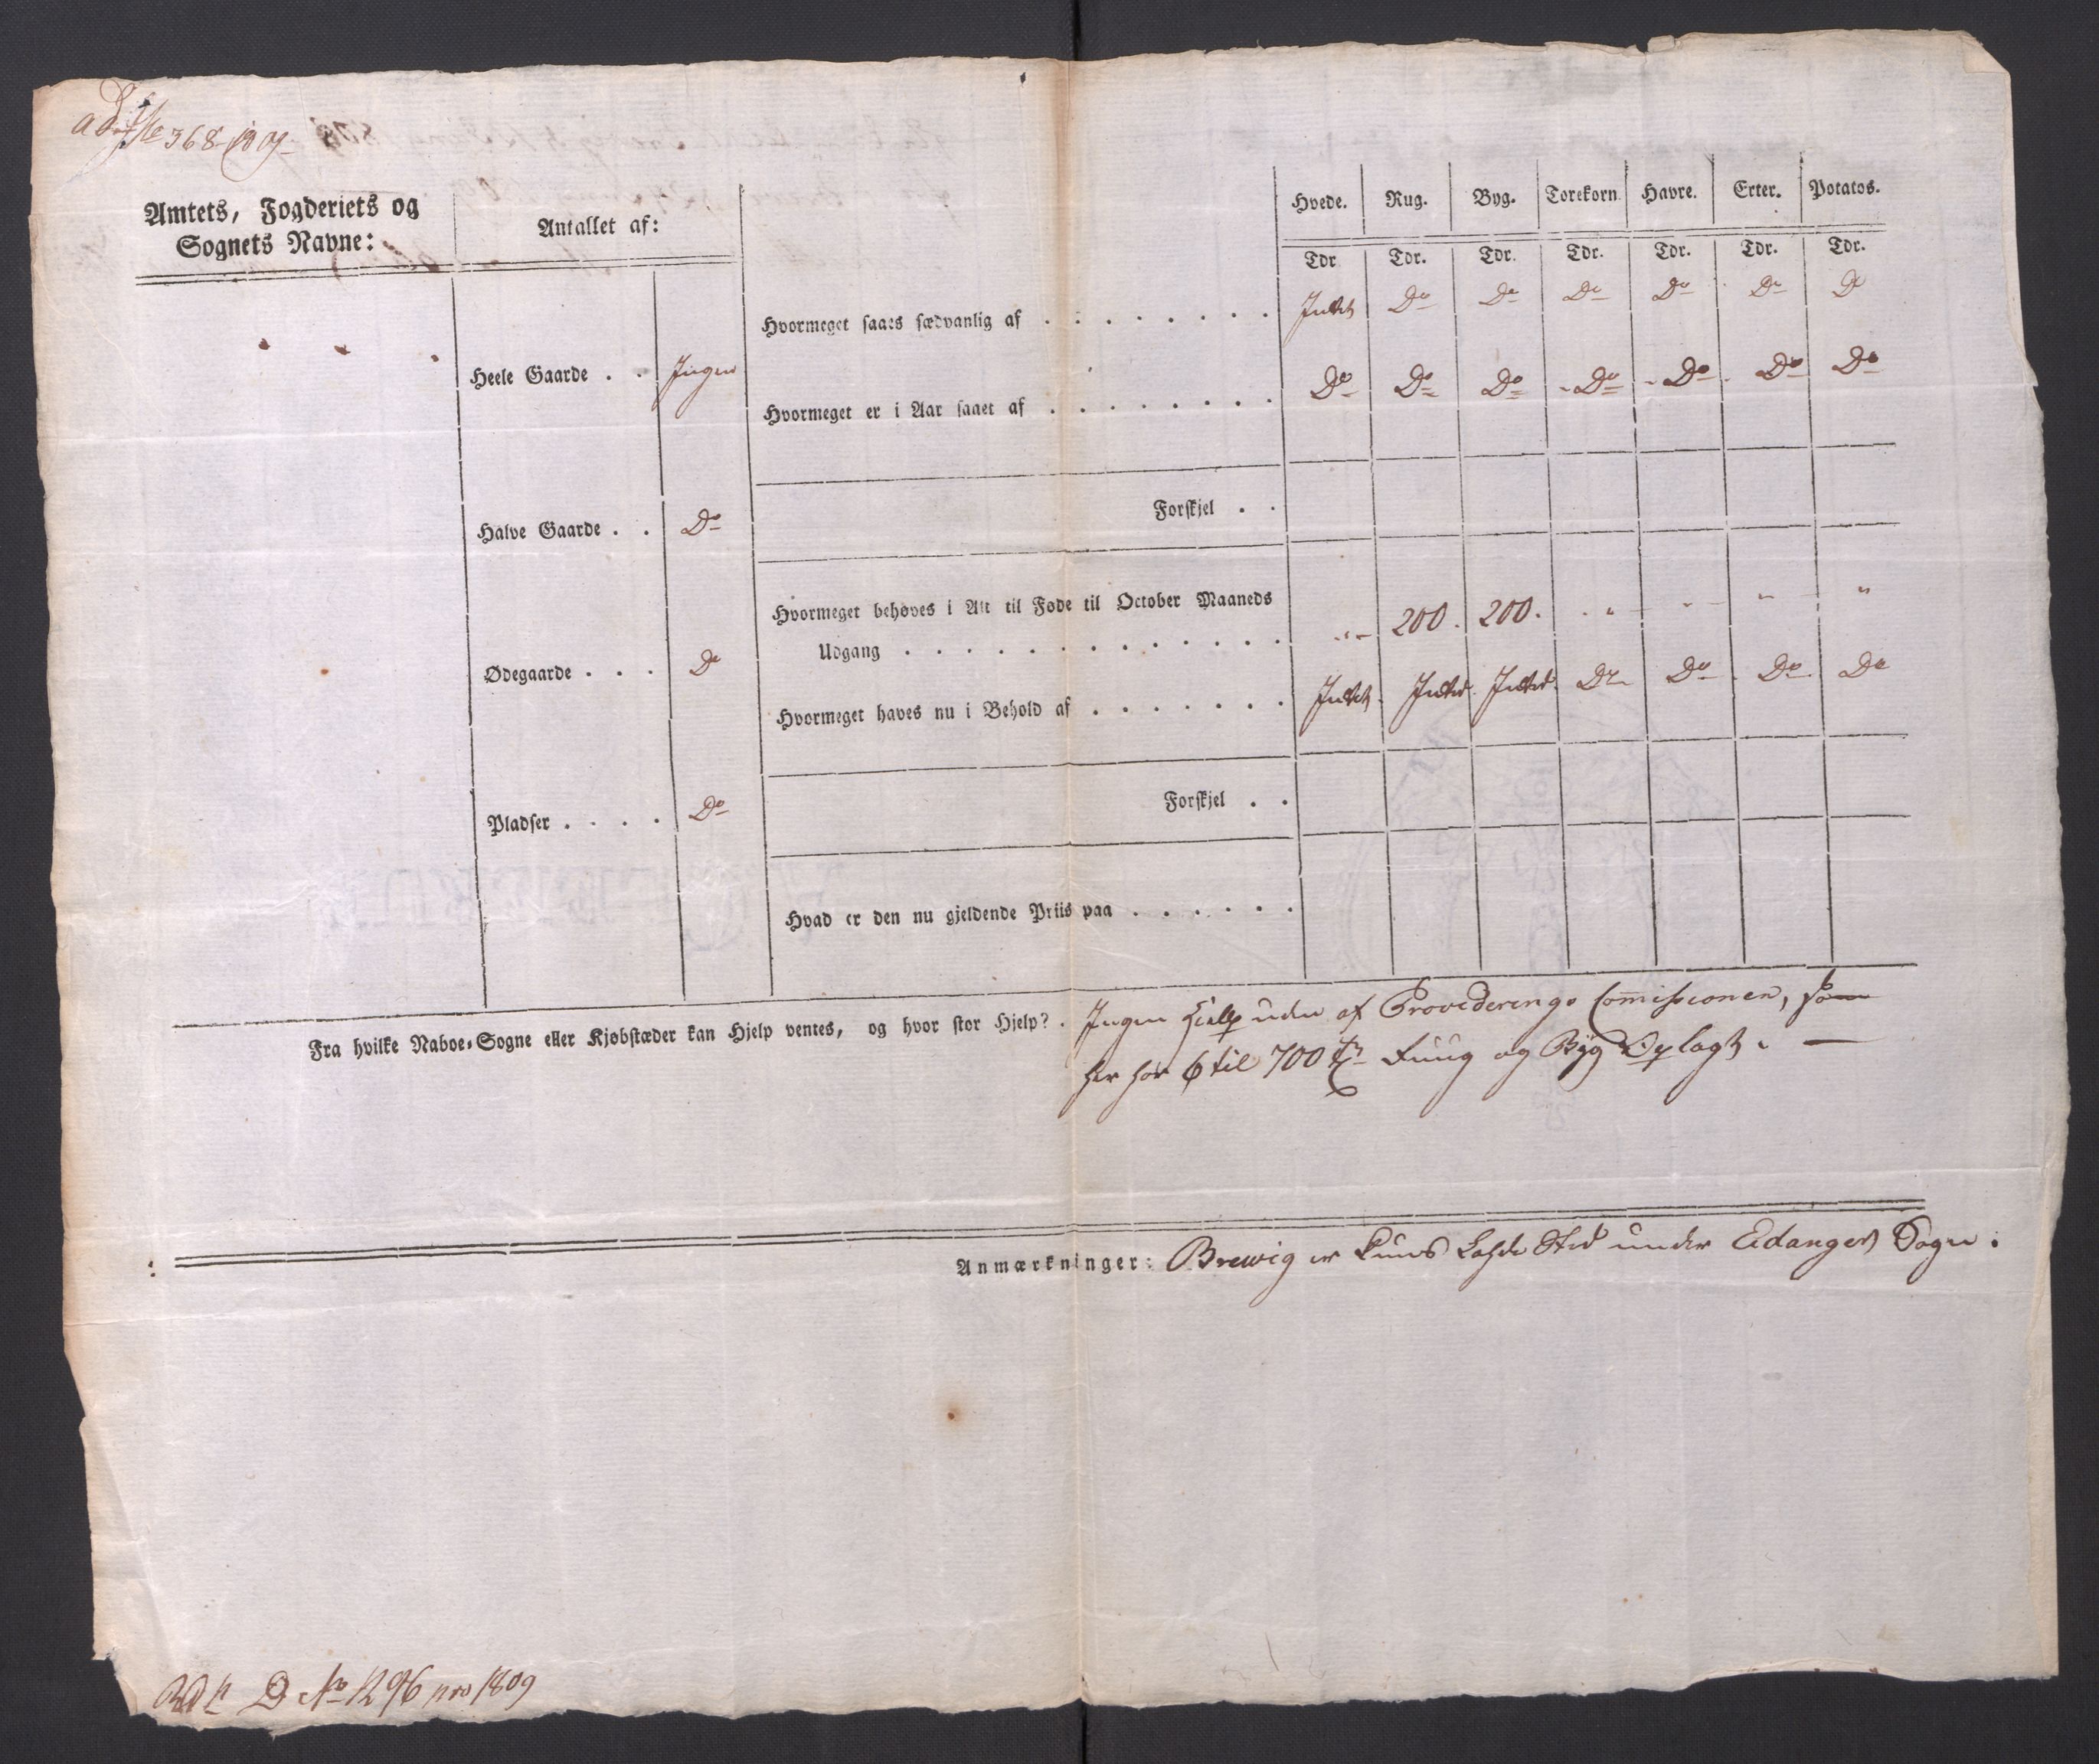 368 1809
Amtets, Fogderiets og
Sognets Navne:
Antallet af:
Hvede. Rug. Byg. Torekorn. Havre. Erter. Potatos.
Tdr. Tdr. Tdr. Tdr. Tdr. Tdr. Tdr.
Hvormeget saaes sædvanlig af . . . . . . . . Intet Do Do Do Do Do Do
Heele Gaarde . . Ingen
Hvormeget er i Aar saaet af . . . . . . . . Do Do Do Do Do Do Do
Forskjel . .
Halve Gaarde . . Do
Hvormeget behøves i Alt til Føde til October Maaneds
Udgang . . . . . . . . . . . . . " 200. 200. " " " "
Ødegaarde . . . Do
Hvormeget haves nu i Behold af . . . . . . . Intet Intet Intet Do Do Do Do
Forskjel . .
Pladser . . . . Do
Hvad er den nu gjeldende Priis paa . . . . . .
Fra hvilke Naboe-Sogne eller Kjøbstæder kan Hjelp ventes, og hvor stor Hjelp? . Ingen Hielp uden af Provederings Commissionen, som
her har 6 til 700 Tr Ruug og Byg Oplagt. —
Anmærkninger: Brewig er kuns Lasde Sted under Eidangers Sogn.
D No 1296 pro 1809